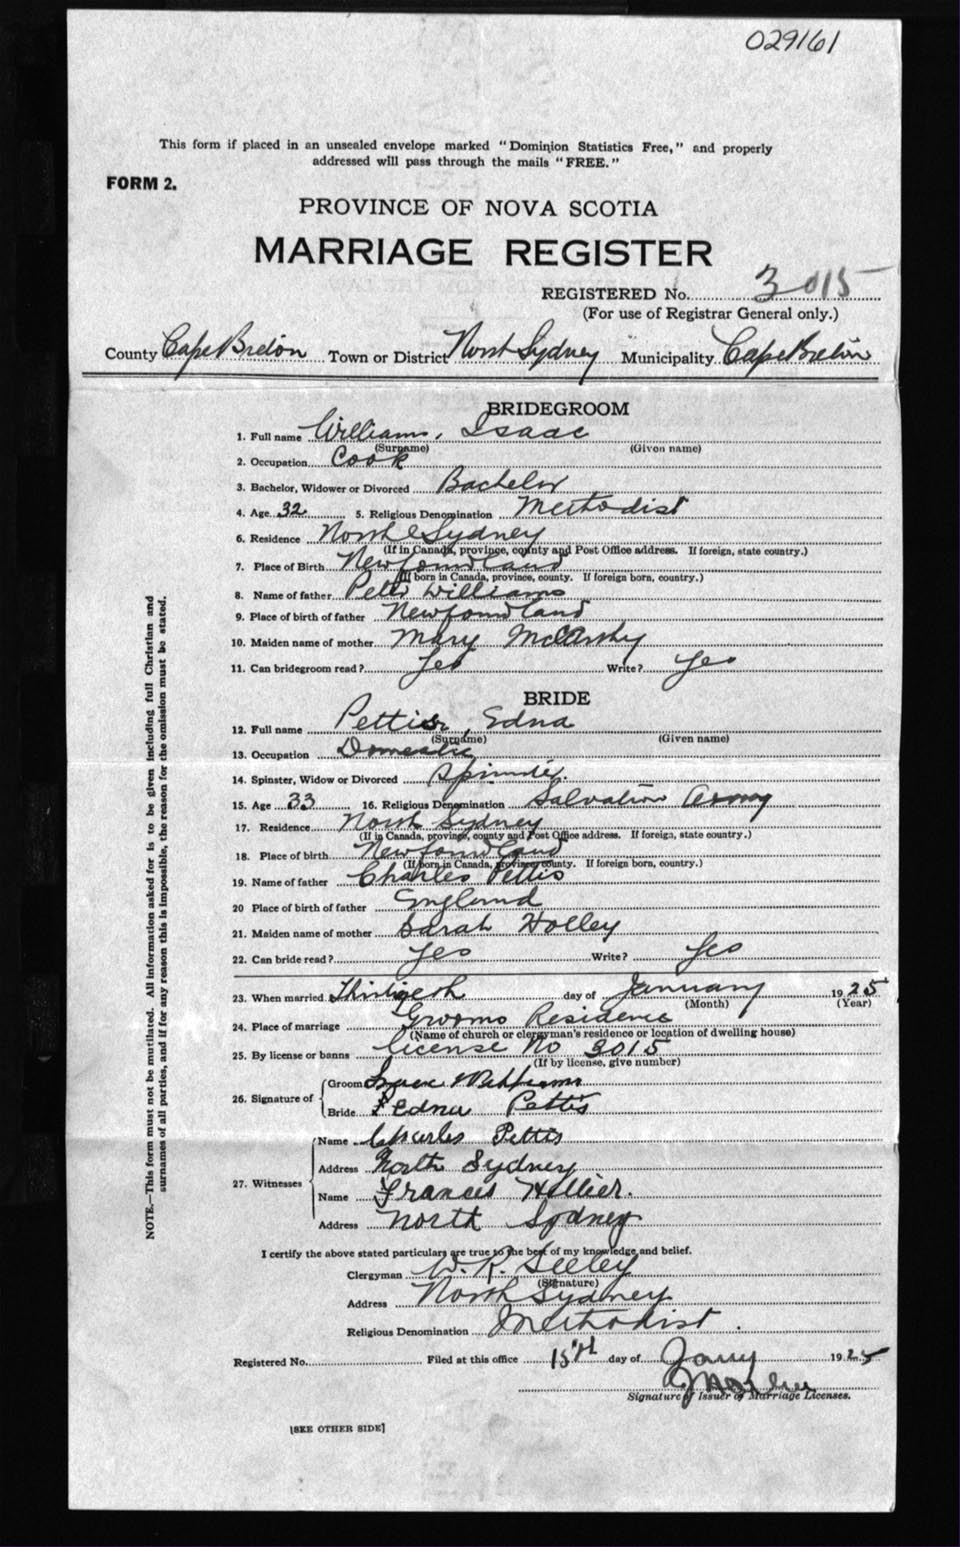 029161
This form if placed in an unsealed envelope marked "Dominion Statistics Free," and properly
addressed will pass through the mails "FREE."
FORM 2.
PROVINCE OF NOVA SCOTIA
MARRIAGE REGISTER
REGISTERED No. 3015
(For use of Registrar General only.)
County Cape Breton Town or District North Sydney Municipality Cape Breton
BRIDEGROOM
1. Full name Williams, Isaac
(Surname) (Given name)
2. Occupation Cook
3. Bachelor, Widower or Divorced Bachelor
4. Age 32 5. Religious Denomination Methodist
6. Residence North Sydney
(If in Canada, province, county and Post Office address. If foreign, state country.)
7. Place of Birth Newfoundland
(If born in Canada, province, county. If foreign born, country.)
8. Name of father Peter Williams
9. Place of birth of father Newfoundland
10. Maiden name of mother Mary McCarthy
11. Can bridegroom read? Yes Write? Yes
BRIDE
12. Full name Pettis, Edna
(Surname) (Given name)
13. Occupation Domestic
14. Spinster, Widow or Divorced Spinster.
15. Age 33 16. Religious Denomination Salvation Army
17. Residence North Sydney
(If in Canada, province, county and Post Office address. If foreign, state country.)
18. Place of birth Newfoundland
(If born in Canada, province, county. If foreign born, country.)
19. Name of father Charles Pettis
20 Place of birth of father England
21. Maiden name of mother Sarah Holley
22. Can bride read? Yes Write? Yes
23. When married day of January 1925
(Month) (Year)
24. Place of marriage Grooms Residence
(Name of church or clergyman's residence or location of dwelling house)
25. By license or banns License No 3015
(If by license, give number)
26. Signature of Groom Isaac Williams
Bride Edna Pettis
27. Witnesses Name Charles Pettis
Address North Sydney
Name Frances Hillier.
Address North Sydney
I certify the above stated particulars are true to the best of my knowledge and belief.
Clergyman W. R. Seeley
(Signature)
Address North Sydney
Religious Denomination Methodist.
Registered No. Filed at this office 15th day of Jany 1925
Signature of Issuer of Marriage Licenses.
[SEE OTHER SIDE]
NOTE.—This form must not be mutilated. All information asked for is to be given including full Christian and
surnames of all parties, and if for any reason this is impossible, the reason for the omission must be stated.